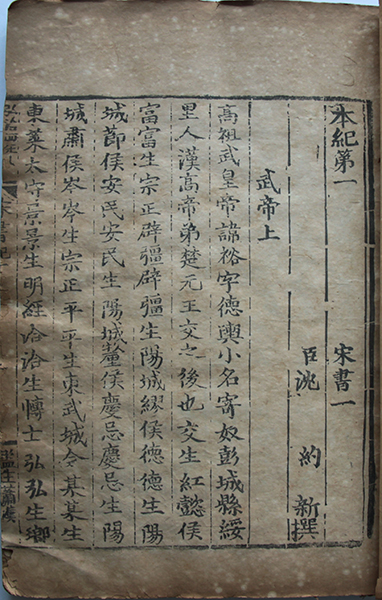 本紀第一 宋書一
臣沈 約 新撰
武帝上
高祖武皇帝諱裕字德輿小名寄奴彭城縣綏
里人漢高帝弟楚元王交之後也交生紅懿侯
富富生宗正辟彊辟彊生陽城繆侯德德生陽
城節侯安民安民生陽城釐侯慶忌慶忌生陽
城肅侯岑岑生宗正平平生東武城令某某生
東萊太守景景生明經洽洽生博士弘弘生鄉